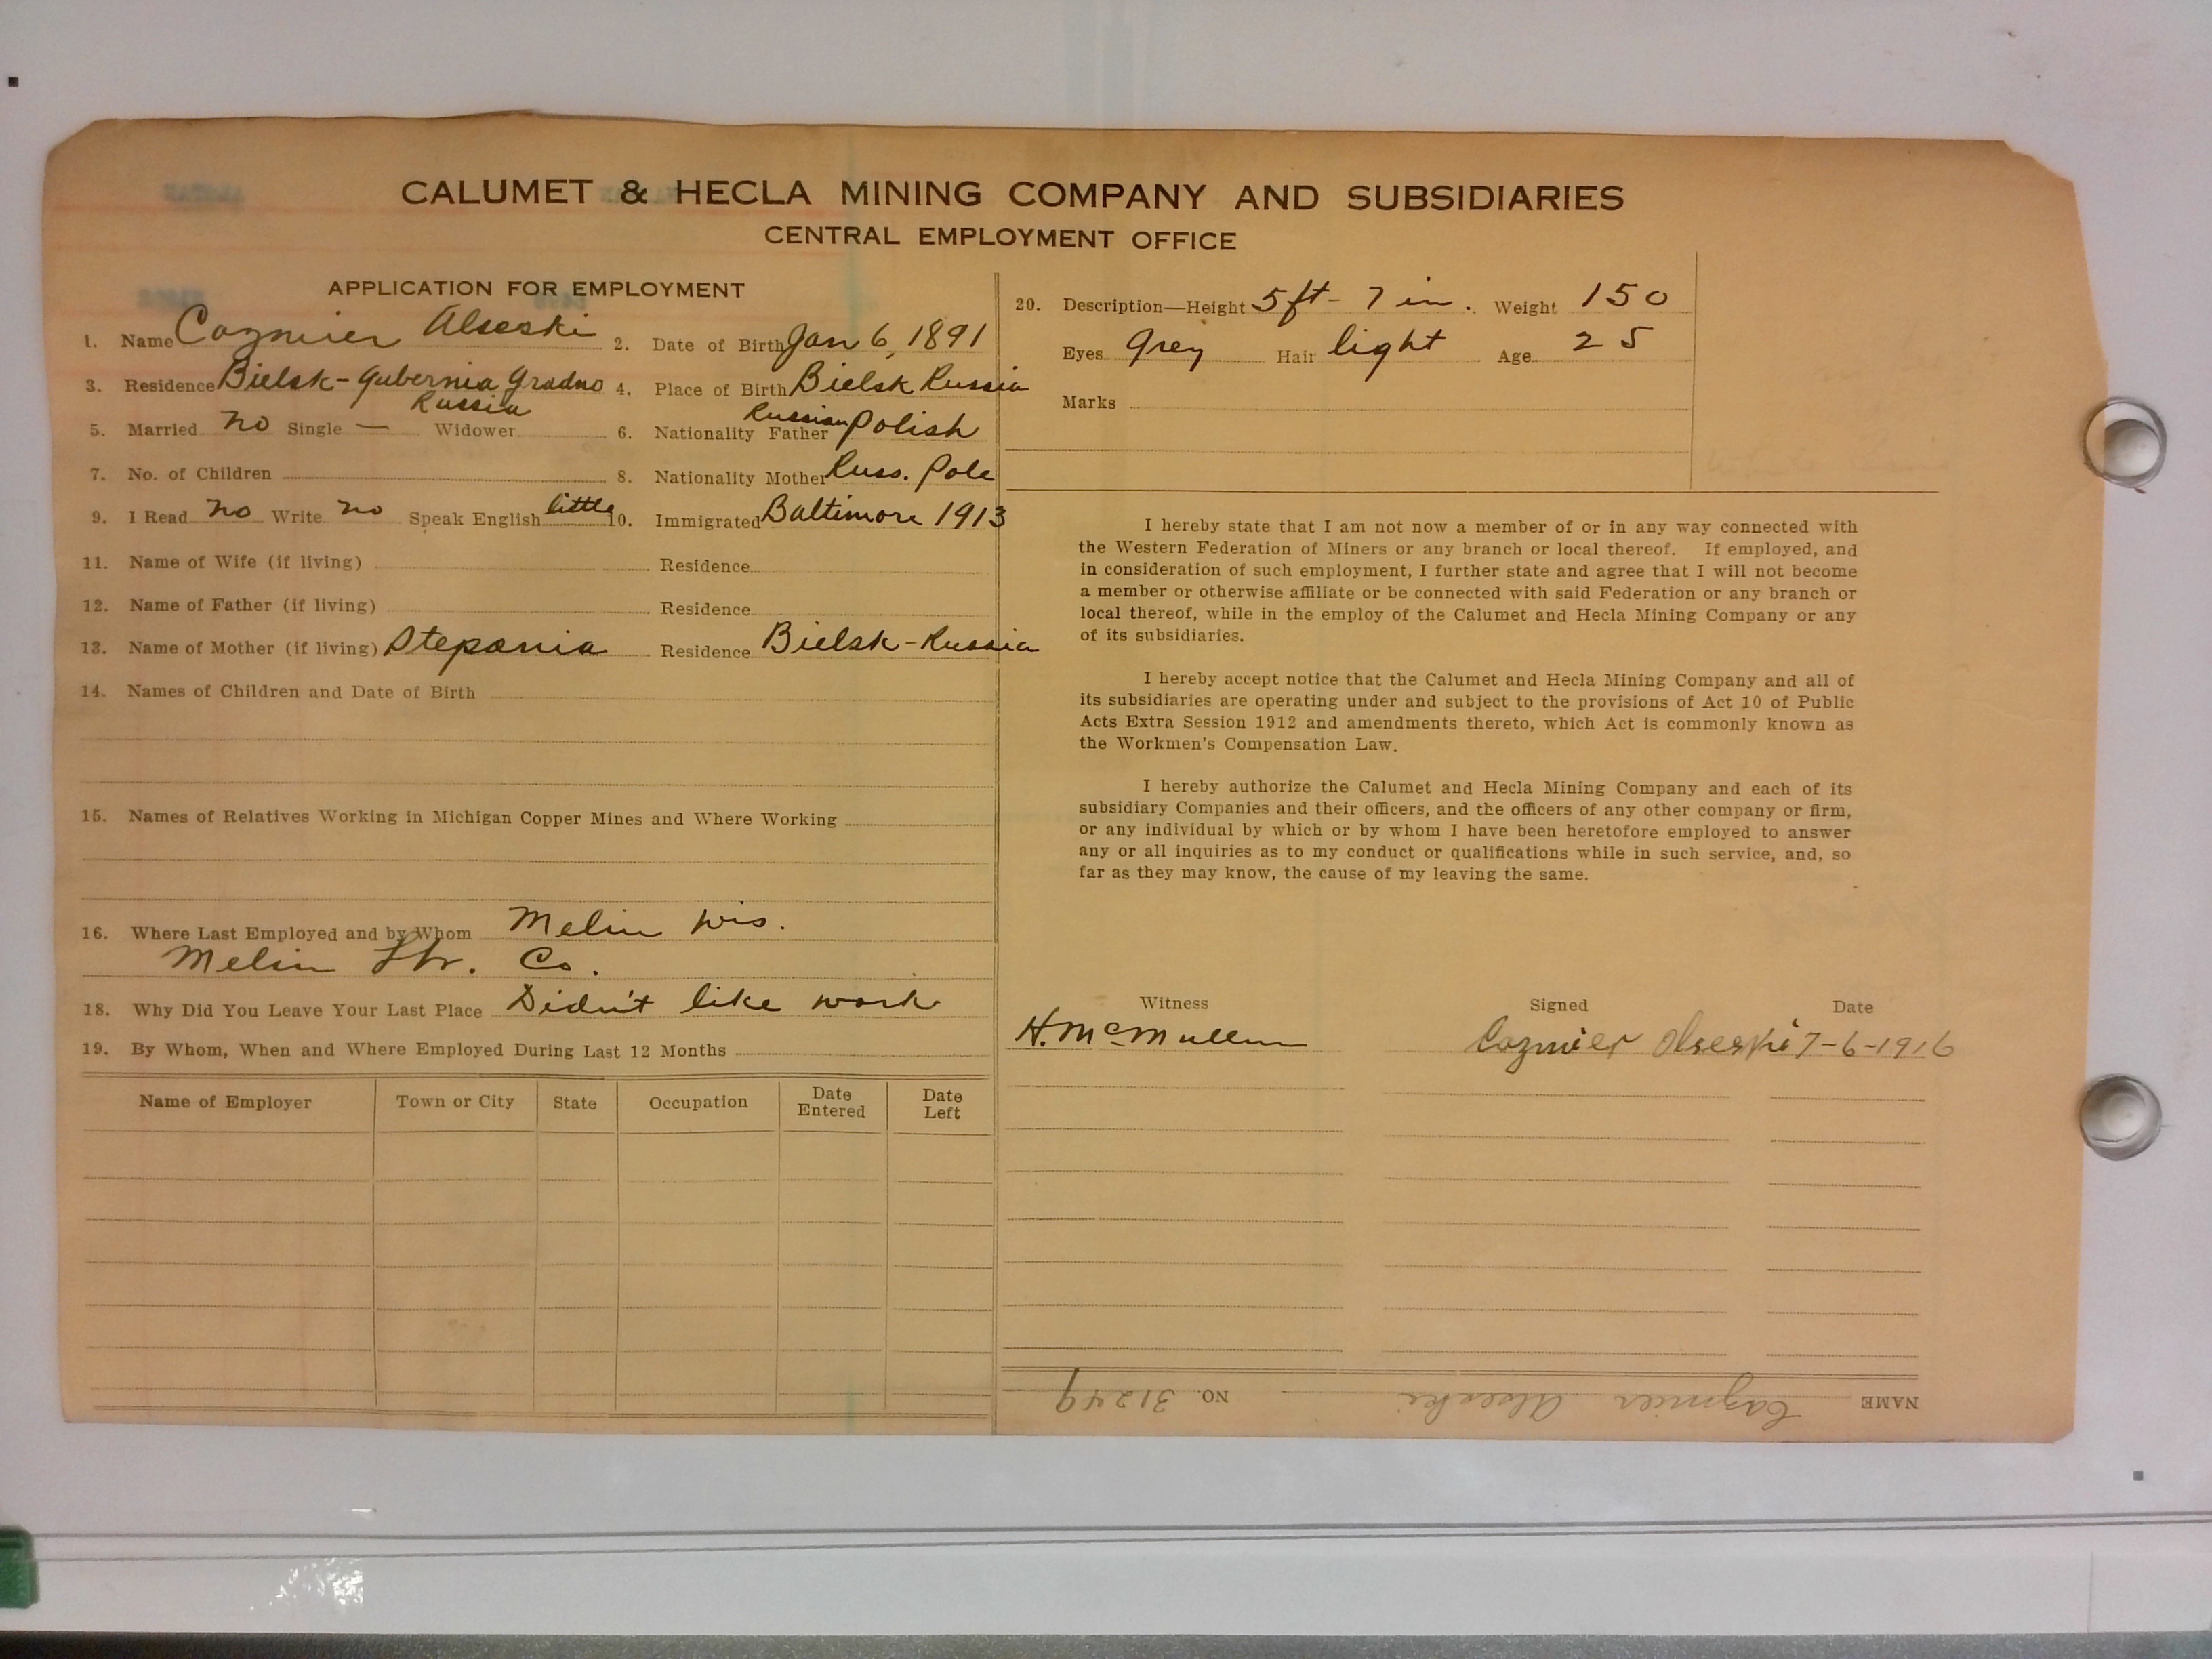 CALUMET & HECLA MINING COMPANY AND SUBSIDIARIES
CENTRAL EMPLOYMENT OFFICE
APPLICATION FOR EMPLOYMENT
1. Name Cozmier Alseski 2. Date of Birth Jan 6, 1891
3. Residence Bielsk - Gubernia Gradno Russia 4. Place of Birth Bielsk Russia
5. Married no Single — Widower 6. Nationality Father Russian Polish
7. No. of Children 8. Nationality Mother Russ. Pole
9. I Read no Write no Speak English little 10. Immigrated Baltimore 1913
11. Name of Wife (if living) Residence
12. Name of Father (if living) Residence
13. Name of Mother (if living) Stepania Residence Bielsk - Russia
14. Names of Children and Date of Birth
15. Names of Relatives Working in Michigan Copper Mines and Where Working
16. Where Last Employed and by Whom Melin Wis.
Melin Lbr. Co.
18. Why Did You Leave Your Last Place Didn't like work
19. By Whom, When and Where Employed During Last 12 Months
Name of Employer Town or City State Occupation Date Entered Date Left
20. Description—Height 5 ft - 7 in. Weight 150
Eyes Grey Hair light Age 25
Marks
I hereby state that I am not now a member of or in any way connected with
the Western Federation of Miners or any branch or local thereof. If employed, and
in consideration of such employment, I further state and agree that I will not become
a member or otherwise affiliate or be connected with said Federation or any branch or
local thereof, while in the employ of the Calumet and Hecla Mining Company or any
of its subsidiaries.
I hereby accept notice that the Calumet and Hecla Mining Company and all of
its subsidiaries are operating under and subject to the provisions of Act 10 of Public
Acts Extra Session 1912 and amendments thereto, which Act is commonly known as
the Workmen's Compensation Law.
I hereby authorize the Calumet and Hecla Mining Company and each of its
subsidiary Companies and their officers, and the officers of any other company or firm,
or any individual by which or by whom I have been heretofore employed to answer
any or all inquiries as to my conduct or qualifications while in such service, and, so
far as they may know, the cause of my leaving the same.
Witness Signed Date
H. McMullen Cozmier Olseski 7-6-1916
NAME Cozmier Alseski NO. 31249